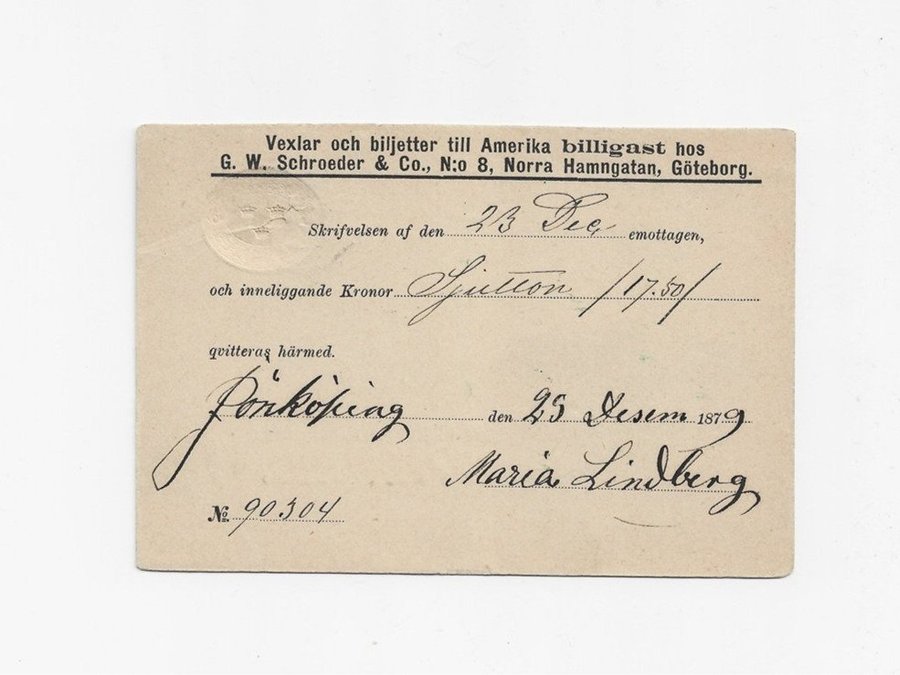 Vexlar och biljetter till Amerika billigast hos
G. W. Schroeder & Co., N:o 8, Norra Hamngatan, Göteborg.
Skrifvelsen af den 23 Dec emottagen,
och inneliggande Kronor Sjutton /17.50/
qvitteras härmed.
Jönköping den 25 Desem 1879
Maria Lindberg
No. 90304